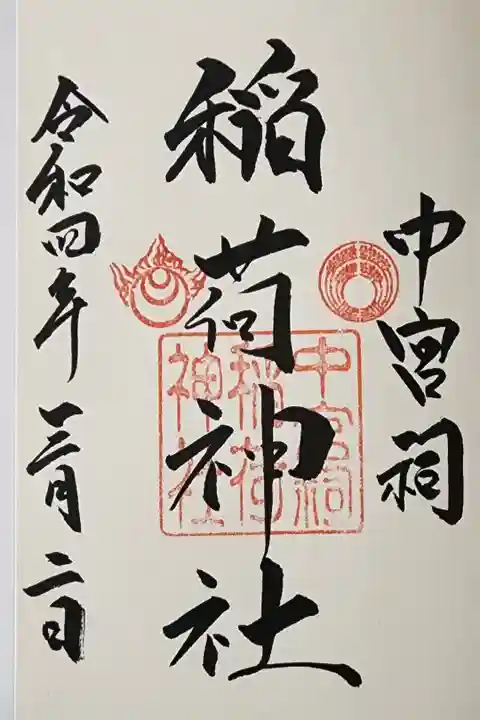 中宮祠
稲荷神社
令和四年三月二日
中宮祠
稲荷
神社